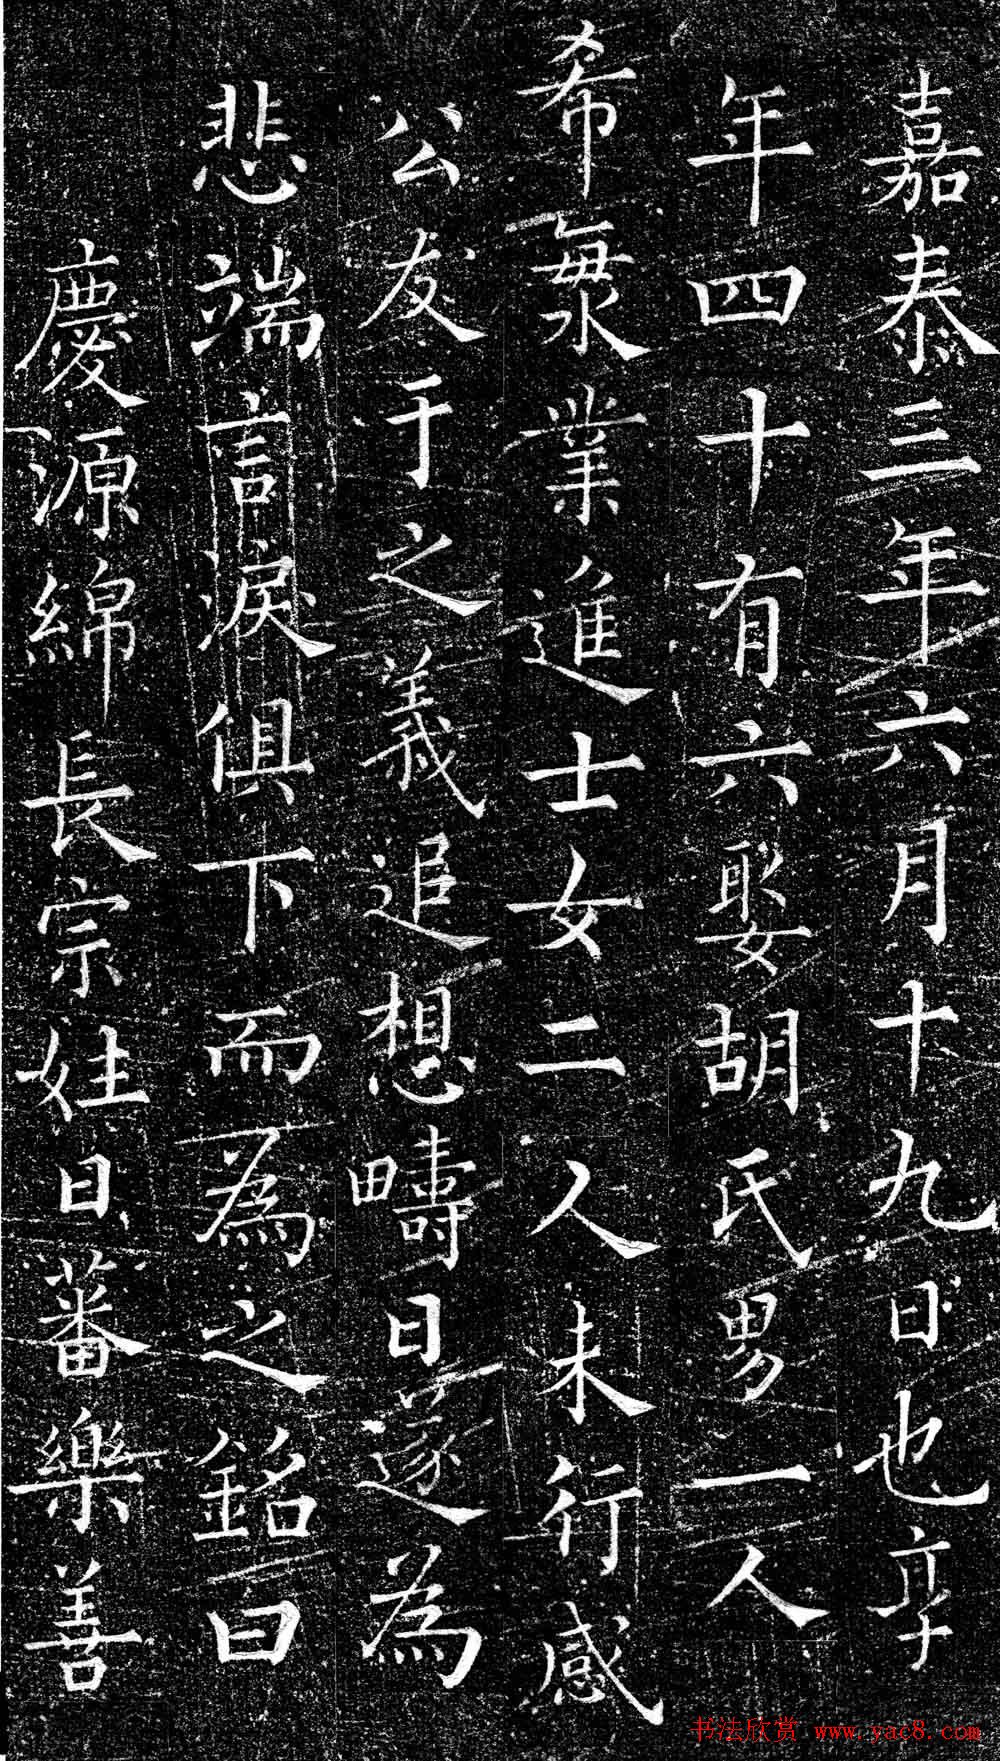 嘉泰三年六月十九日也享
年四十有六娶胡氏男一人
希業進士女二人未行感
公友于之義追想疇日遂為
悲端言淚俱下而為之銘曰
慶源綿長宗姓日蕃樂善
书法欣赏 www.yac8.com